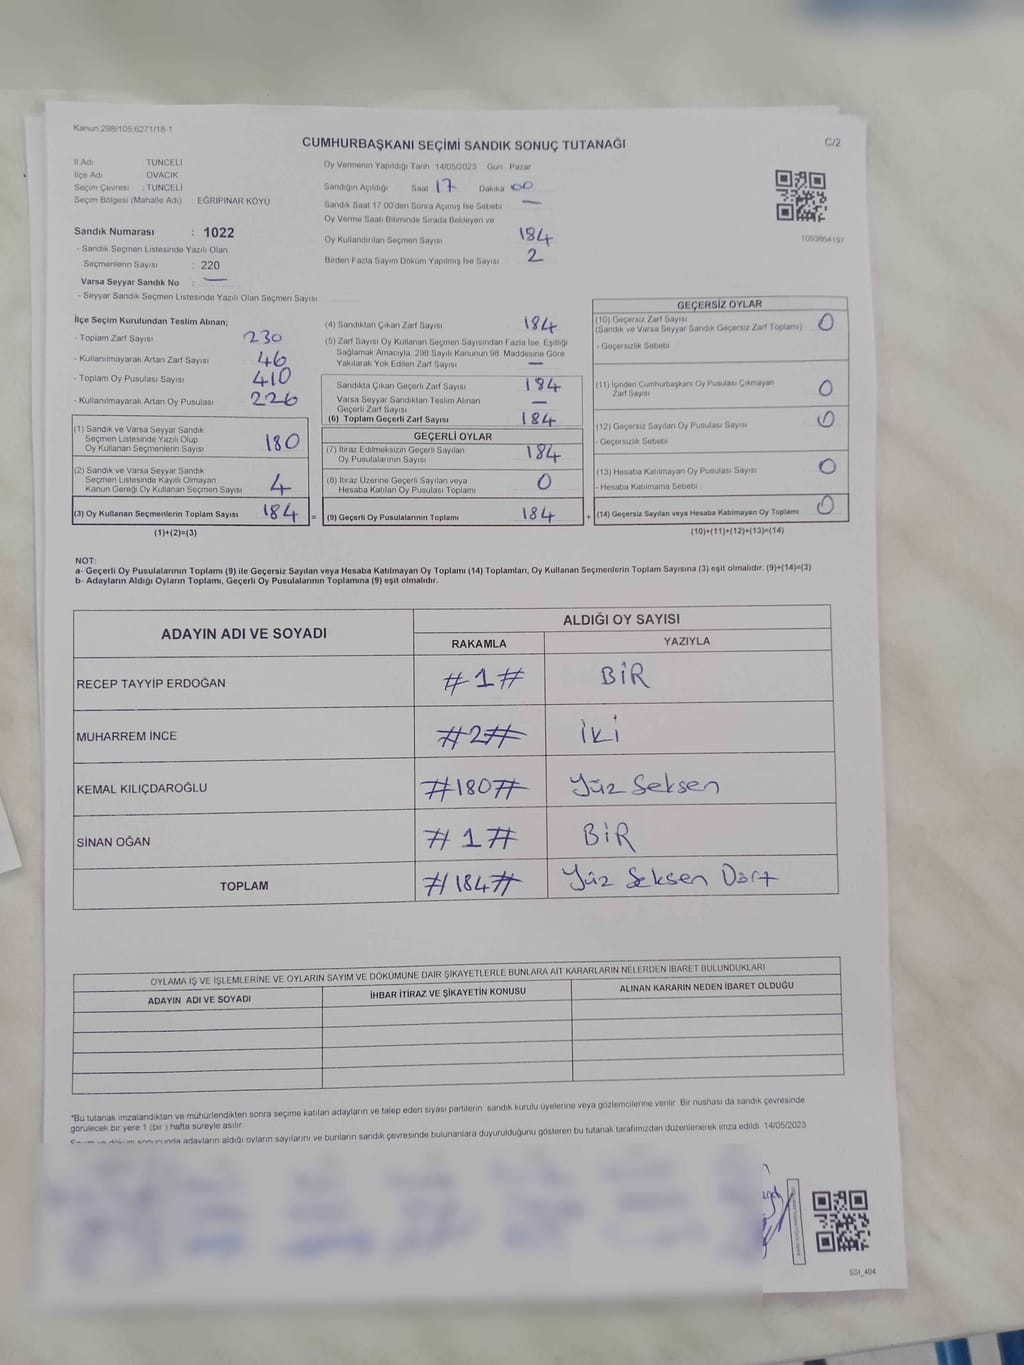 Kanun:298/105,6271/18-1
CUMHURBAŞKANI SEÇİMİ SANDIK SONUÇ TUTANAĞI
C/2
İl Adı : TUNCELİ
İlçe Adı : OVACIK
Seçim Çevresi : TUNCELİ
Seçim Bölgesi (Mahalle Adı) : EĞRİPINAR KÖYÜ
Sandık Numarası : 1022
- Sandık Seçmen Listesinde Yazılı Olan
Seçmenlerin Sayısı : 220
Varsa Seyyar Sandık No : —
- Seyyar Sandık Seçmen Listesinde Yazılı Olan Seçmen Sayısı:
Oy Vermenin Yapıldığı Tarih :14/05/2023 Gün: Pazar
Sandığın Açıldığı Saat 17 Dakika 00
Sandık Saat 17.00'den Sonra Açımış İse Sebebi —
Oy Verme Saati Bitiminde Sırada Bekleyen ve
Oy Kullandırılan Seçmen Sayısı 184
Birden Fazla Sayım Döküm Yapılmış İse Sayısı 2
1093864197
İlçe Seçim Kurulundan Teslim Alınan;
- Toplam Zarf Sayısı 230
- Kullanılmayarak Artan Zarf Sayısı 46
- Toplam Oy Pusulası Sayısı 410
- Kullanılmayarak Artan Oy Pusulası 226
(1) Sandık ve Varsa Seyyar Sandık
Seçmen Listesinde Yazılı Olup
Oy Kullanan Seçmenlerin Sayısı 180
(2) Sandık ve Varsa Seyyar Sandık
Seçmen Listesinde Kayıtlı Olmayan
Kanun Gereği Oy Kullanan Seçmen Sayısı 4
(3) Oy Kullanan Seçmenlerin Toplam Sayısı 184 =
(1)+(2)=(3)
(4) Sandıktan Çıkan Zarf Sayısı 184
(5) Zarf Sayısı Oy Kullanan Seçmen Sayısından Fazla İse, Eşitliği
Sağlamak Amacıyla, 298 Sayılı Kanunun 98. Maddesine Göre
Yakılarak Yok Edilen Zarf Sayısı —
Sandıkta Çıkan Geçerli Zarf Sayısı 184
Varsa Seyyar Sandıktan Teslim Alınan
Geçerli Zarf Sayısı —
(6) Toplam Geçerli Zarf Sayısı 184
GEÇERLİ OYLAR
(7) İtiraz Edilmeksizin Geçerli Sayılan
Oy Pusulalarının Sayısı 184
(8) İtiraz Üzerine Geçerli Sayılan veya
Hesaba Katılan Oy Pusulası Toplamı 0
(9) Geçerli Oy Pusulalarının Toplamı 184 +
GEÇERSİZ OYLAR
(10) Geçersiz Zarf Sayısı 0
(Sandık ve Varsa Seyyar Sandık Geçersiz Zarf Toplamı)
- Geçersizlik Sebebi
(11) İçinden Cumhurbaşkanı Oy Pusulası Çıkmayan
Zarf Sayısı 0
(12) Geçersiz Sayılan Oy Pusulası Sayısı 0
- Geçersizlik Sebebi
(13) Hesaba Katılmayan Oy Pusulası Sayısı 0
- Hesaba Katılmama Sebebi :
(14) Geçersiz Sayılan veya Hesaba Katılmayan Oy Toplamı 0
(10)+(11)+(12)+(13)=(14)
NOT:
a- Geçerli Oy Pusulalarının Toplamı (9) ile Geçersiz Sayılan veya Hesaba Katılmayan Oy Toplamı (14) Toplamları, Oy Kullanan Seçmenlerin Toplam Sayısına (3) eşit olmalıdır. (9)+(14)=(3)
b- Adayların Aldığı Oyların Toplamı, Geçerli Oy Pusulalarının Toplamına (9) eşit olmalıdır.
ADAYIN ADI VE SOYADI
ALDIĞI OY SAYISI
RAKAMLA YAZIYLA
RECEP TAYYİP ERDOĞAN #1# BİR
MUHARREM İNCE #2# İKİ
KEMAL KILIÇDAROĞLU #180# Yüz Seksen
SİNAN OĞAN #1# BİR
TOPLAM #184# Yüz Seksen Dört
OYLAMA İŞ VE İŞLEMLERİNE VE OYLARIN SAYIM VE DÖKÜMÜNE DAİR ŞİKAYETLERLE BUNLARA AİT KARARLARIN NELERDEN İBARET BULUNDUKLARI
ADAYIN ADI VE SOYADI İHBAR İTİRAZ VE ŞİKAYETİN KONUSU ALINAN KARARIN NEDEN İBARET OLDUĞU
*Bu tutanak imzalandıktan ve mühürlendikten sonra seçime katılan adayların ve talep eden siyasi partilerin sandık kurulu üyelerine veya gözlemcilerine verilir. Bir nüshası da sandık çevresinde
görülecek bir yere 1 (bir ) hafta süreyle asılır.
Sayım ve döküm sonucunda adayların aldığı oyların sayılarını ve bunların sandık çevresinde bulunanlara duyurulduğunu gösteren bu tutanak tarafımızdan düzenlenerek imza edildi. 14/05/2023
SSI_404